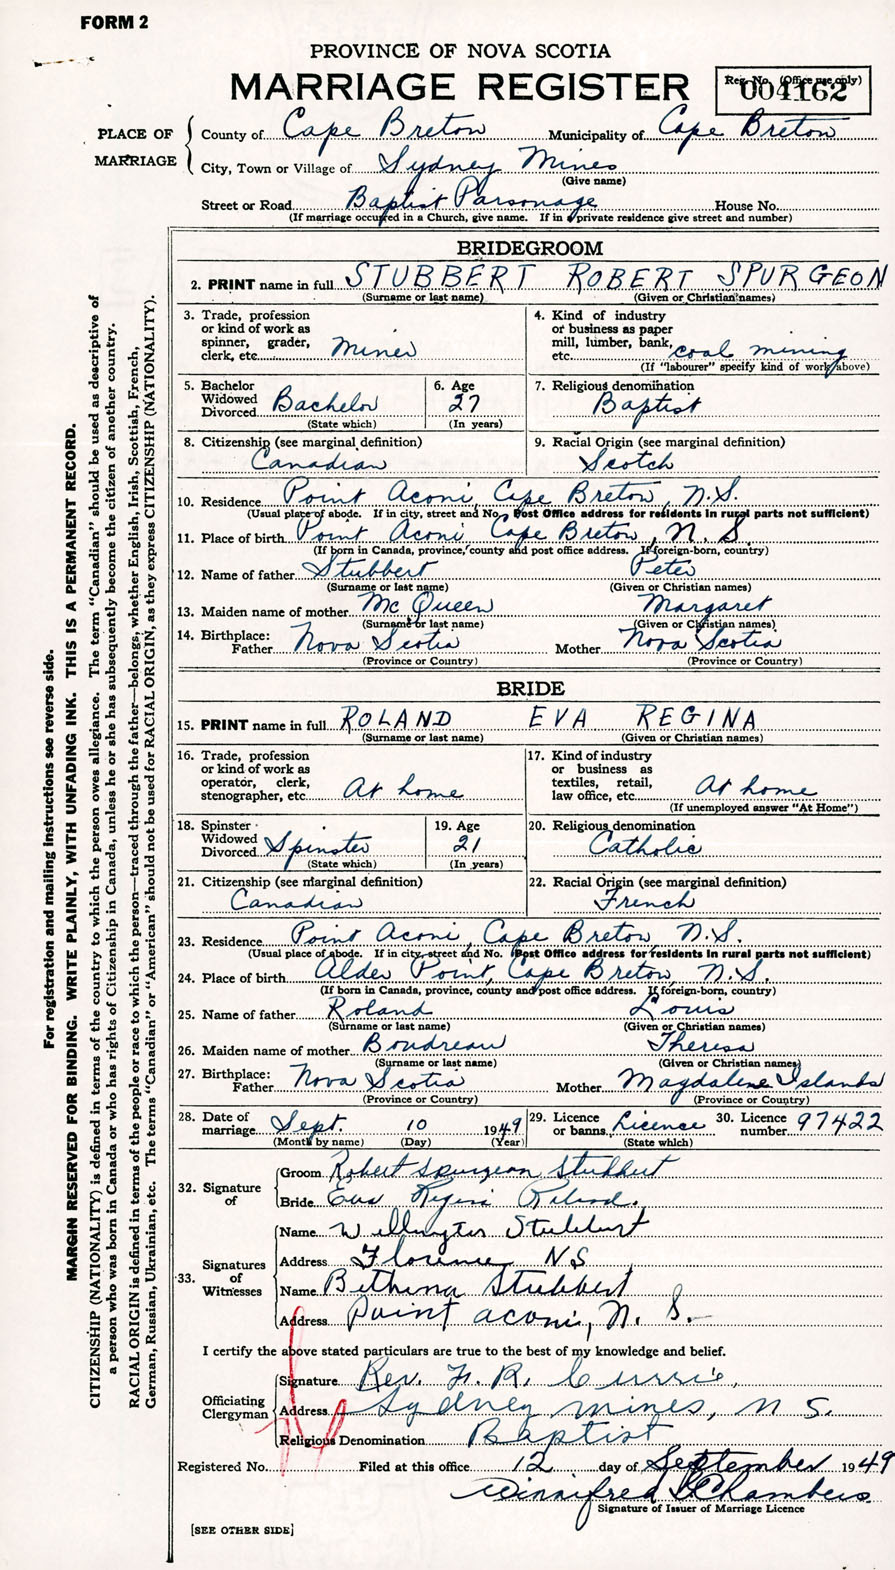 FORM 2
PROVINCE OF NOVA SCOTIA
MARRIAGE REGISTER
Reg. No. (Office use only)
004162
PLACE OF MARRIAGE
County of Cape Breton Municipality of Cape Breton
City, Town or Village of Sydney Mines
(Give name)
Street or Road Baptist Parsonage House No.
(If marriage occurred in a Church, give name. If in a private residence give street and number)
BRIDEGROOM
2. PRINT name in full STUBBERT ROBERT SPURGEON
(Surname or last name) (Given or Christian names)
3. Trade, profession or kind of work as spinner, grader, clerk, etc. Miner
4. Kind of industry or business as paper mill, lumber, bank, etc. coal mining
(If "labourer" specify kind of work above)
5. Bachelor Widowed Divorced Bachelor
(State which)
6. Age 27
(In years)
7. Religious denomination Baptist
8. Citizenship (see marginal definition) Canadian
9. Racial Origin (see marginal definition) Scotch
10. Residence Point Aconi, Cape Breton, N.S.
(Usual place of abode. If in city, street and No. Post Office address for residents in rural parts not sufficient)
11. Place of birth Point Aconi Cape Breton, N.S.
(If born in Canada, province, county and post office address. If foreign-born, country)
12. Name of father Stubbert Peter
(Surname or last name) (Given or Christian names)
13. Maiden name of mother McQueen Margaret
(Surname or last name) (Given or Christian names)
14. Birthplace: Father Nova Scotia Mother Nova Scotia
(Province or Country) (Province or Country)
BRIDE
15. PRINT name in full ROLAND EVA REGINA
(Surname or last name) (Given or Christian names)
16. Trade, profession or kind of work as operator, clerk, stenographer, etc. At home
17. Kind of industry or business as textiles, retail, law office, etc. At home
(If unemployed answer "At Home")
18. Spinster Widowed Divorced Spinster
(State which)
19. Age 21
(In years)
20. Religious denomination Catholic
21. Citizenship (see marginal definition) Canadian
22. Racial Origin (see marginal definition) French
23. Residence Point Aconi, Cape Breton, N.S.
(Usual place of abode. If in city, street and No. Post Office address for residents in rural parts not sufficient)
24. Place of birth Alder Point, Cape Breton, N.S.
(If born in Canada, province, county and post office address. If foreign-born, country)
25. Name of father Roland Louis
(Surname or last name) (Given or Christian names)
26. Maiden name of mother Boudreau Theresa
(Surname or last name) (Given or Christian names)
27. Birthplace: Father Nova Scotia Mother Magdalene Islands
(Province or Country) (Province or Country)
28. Date of marriage Sept. 10 1949
(Month by name) (Day) (Year)
29. Licence or banns Licence
(State which)
30. Licence number 97422
32. Signature of
Groom Robert Spurgeon Stubbert
Bride Eva Regina Roland.
33. Signatures of Witnesses
Name Wellington Stubbert
Address Florence NS
Name Bethena Stubbert
Address Point aconi, N. S.
I certify the above stated particulars are true to the best of my knowledge and belief.
Officiating Clergyman
Signature Rev. F. R. Currie,
Address Sydney mines, N S.
Religious Denomination Baptist
Registered No. Filed at this office 12 day of September 1949
Winnifred S Chambers
Signature of Issuer of Marriage Licence
[SEE OTHER SIDE]
For registration and mailing instructions see reverse side.
MARGIN RESERVED FOR BINDING. WRITE PLAINLY, WITH UNFADING INK. THIS IS A PERMANENT RECORD.
CITIZENSHIP (NATIONALITY) is defined in terms of the country to which the person owes allegiance. The term "Canadian" should be used as descriptive of
a person who was born in Canada or who has rights of Citizenship in Canada, unless he or she has subsequently become the citizen of another country.
RACIAL ORIGIN is defined in terms of the people or race to which the person—traced through the father—belongs, whether English, Irish, Scottish, French,
German, Russian, Ukrainian, etc. The terms "Canadian" or "American" should not be used for RACIAL ORIGIN, as they express CITIZENSHIP (NATIONALITY).